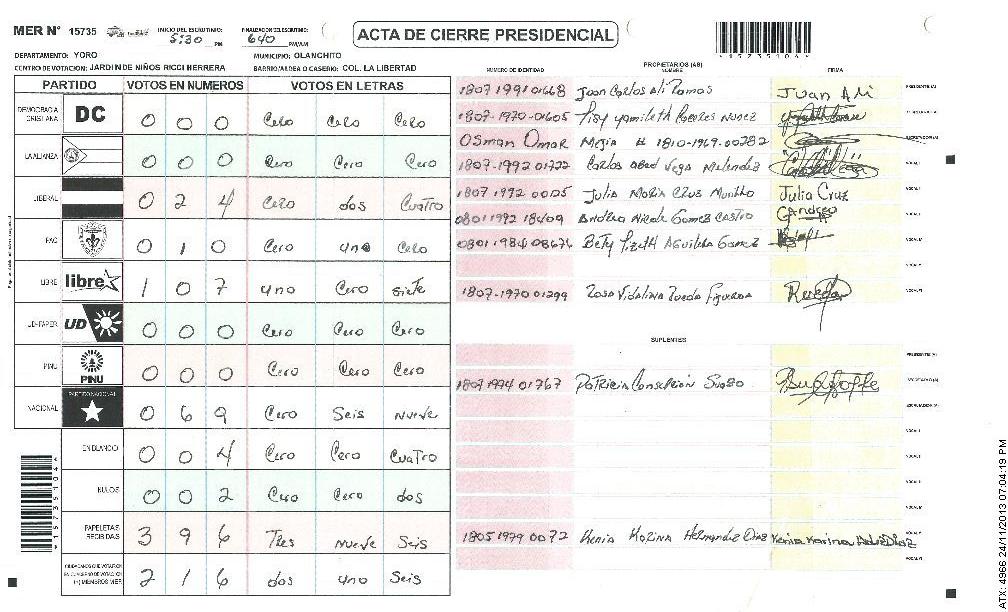 MER N° 15735 INICIO DEL ESCRUTINIO: 5:30 PM FINALIZACION DEL ESCRUTINIO: 640 PM/AM
ACTA DE CIERRE PRESIDENCIAL
DEPARTAMENTO: YORO MUNICIPIO: OLANCHITO
CENTRO DE VOTACION: JARDIN DE NIÑOS RICCI HERRERA BARRIO/ALDEA O CASERIO: COL. LA LIBERTAD
PARTIDO VOTOS EN NUMEROS VOTOS EN LETRAS
DEMOCRACIA CRISTIANA DC 0 0 0 Cero Cero Cero
LA ALIANZA 0 0 0 Cero Cero Cero
LIBERAL 0 2 4 Cero dos Cuatro
PAC 0 1 0 Cero uno Cero
LIBRE libre 1 0 7 uno Cero siete
UD-FAPER UD 0 0 0 Cero Cero Cero
PINU PINU 0 0 0 Cero Cero Cero
NACIONAL PARTIDO NACIONAL 0 6 9 Cero Seis nueve
EN BLANCO 0 0 4 Cero Cero Cuatro
NULOS 0 0 2 Cero Cero dos
PAPELETAS RECIBIDAS 3 9 6 Tres nueve Seis
CIUDADANOS QUE VOTARON (+) MIEMBROS MER 2 1 6 dos uno Seis
PROPIETARIOS (AS)
NUMERO DE IDENTIDAD NOMBRE FIRMA
1807 1991 01668 Juan Carlos Ali Ramos Juan Ali PRESIDENTE (A)
1807-1970-01605 Nunez
Osman Omar Mejia # 1810-1969-00282
1807-1992 01722 Carlos Abad Vega Melendez
1807 1992 00125 Julia Maria Cruz Murillo Julia Cruz
0801 1992 18409 Andrea Nicole Gomez Castro
Bety Lizeth Aguilera Gomez
1807-1970 01299 Rosa Vidalina Rueda Figueroa Rueda
SUPLENTES
PRESIDENTE (A)
1807 1974 01767 Patricia Consepcion SECRETARIO (A)
ESCRUTADOR (A)
VOCAL I
VOCAL II
1805 1979 0072 Kenia Karina Hernandez Diaz Kenia Karina
*15735104*
ATX: 4966 24/11/2013 07:04:19 PM